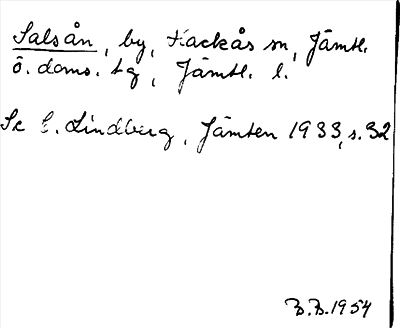 Salsån, by, Hackås sn, Jämtl.
ö. doms. tg, Jämtl. l.
Se E. Lindberg, Jämten 1933, s. 32
B.B. 1954